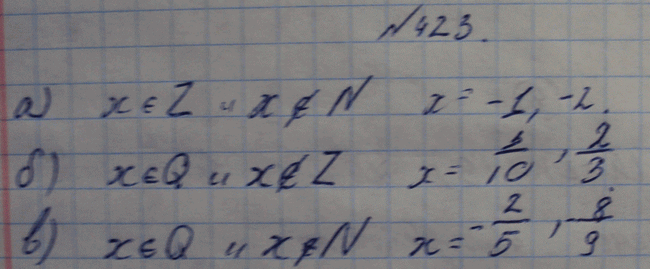 №423.
а) x ∈ Z и x ∉ N x = -1, -2.
б) x ∈ Q и x ∉ Z x = 1/10, 2/3
в) x ∈ Q и x ∉ N x = -2/5, -8/9